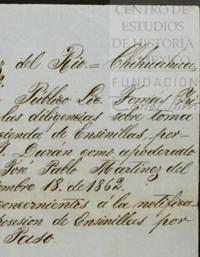 CENTRO DE
ESTUDIOS
DE HISTORIA
DE MÉXICO
FUNDACIÓN
del Rio.= Chihuahua,
Público Lic. Tomás
las diligencias sobre toma
cienda de Ensinillas, por
Durán como apoderado
José Pablo Martinez del
iembre 18. de 1862.
concernientes á la notifica
posesion de Ensinillas por
Paso